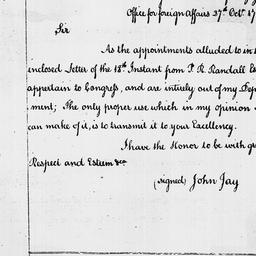 Office for foreign Affairs 27th Octr. 17
Sir
As the appointments alluded to in
enclosed Letter of the 18th Instant from P. R. Randall Es
appertain to Congress, and are intirely out of my Dep
ment; The only proper use which in my opinion
can make of it, is to transmit it to your Excellency.
I have the Honor to be with gr
Respect and Esteem &ca
(signed) John Jay